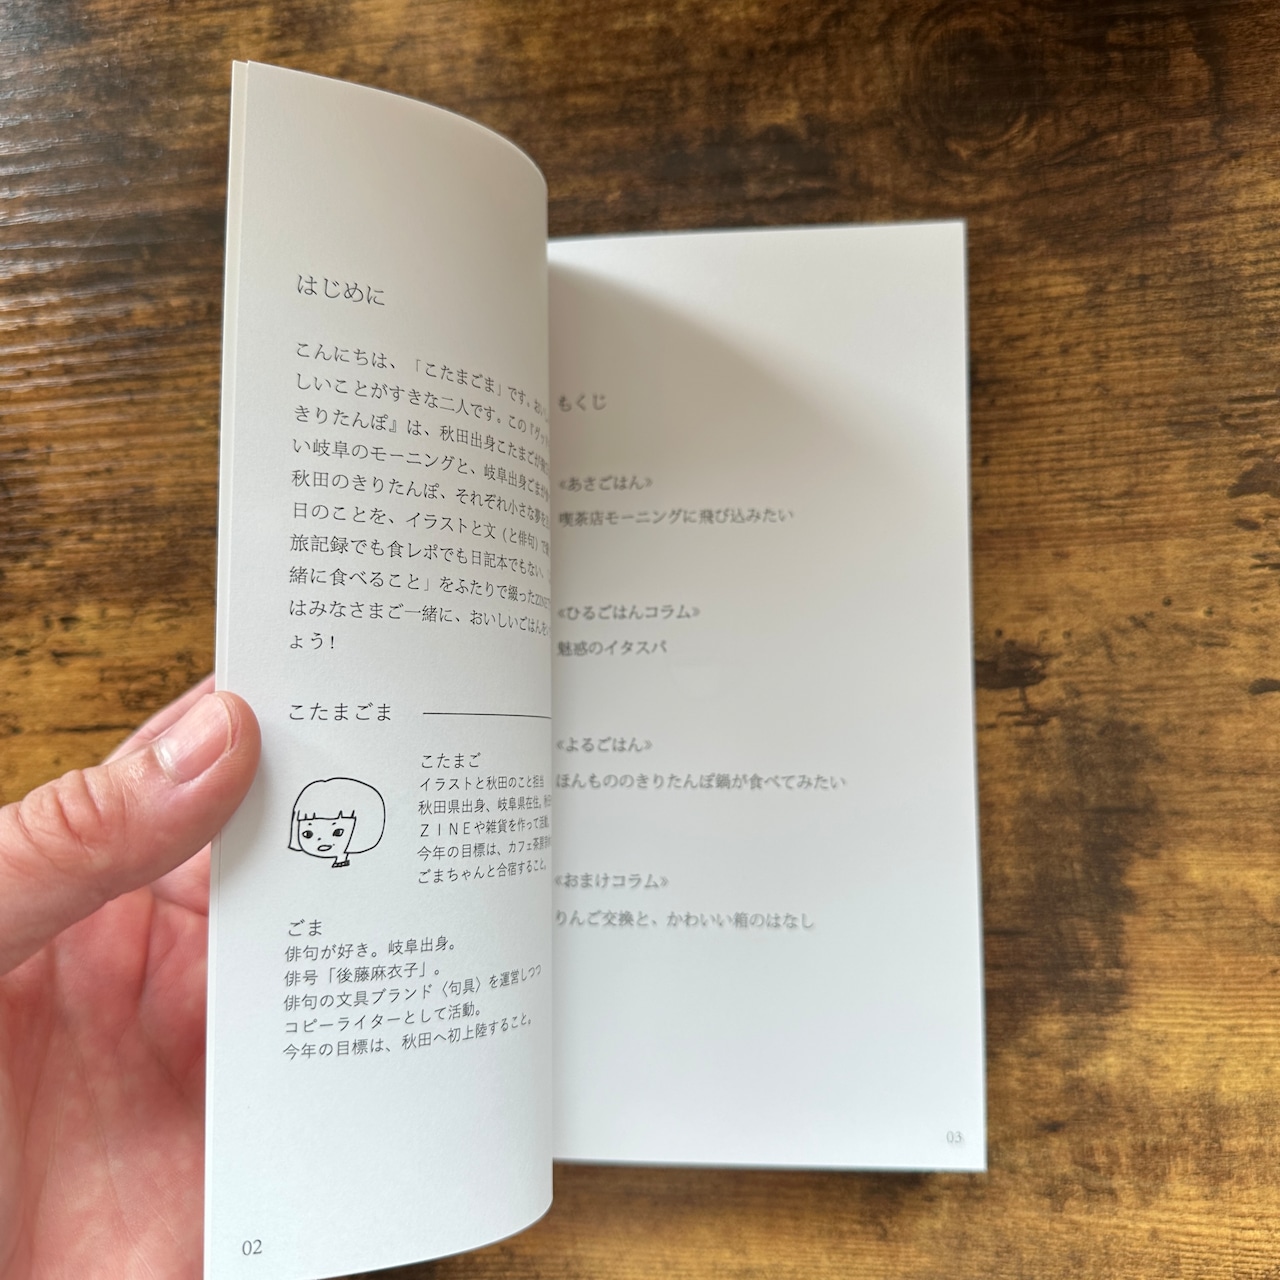 はじめに
こんにちは、「こたまごま」です。おい
しいことがすきな二人です。この『グッ
きりたんぽ』は、秋田出身こたまごが
い岐阜のモーニングと、岐阜出身ごまが
秋田のきりたんぽ、それぞれ小さな夢を
日のことを、イラストと文（と俳句）で
旅記録でも食レポでも日記本でもない、
緒に食べること」をふたりで綴ったZINE
はみなさまご一緒に、おいしいごはんを
ょう！
こたまごま
こたまご
イラストと秋田のこと担当
秋田県出身、岐阜県在住。
ＺＩＮＥや雑貨を作って活動。
今年の目標は、カフェ茶
ごまちゃんと合宿すること。
ごま
俳句が好き。岐阜出身。
俳号「後藤麻衣子」。
俳句の文具ブランド〈句具〉を運営しつつ
コピーライターとして活動。
今年の目標は、秋田へ初上陸すること。
02
もくじ
«あさごはん»
喫茶店モーニングに飛び込みたい
«ひるごはんコラム»
魅惑のイタスパ
«よるごはん»
ほんもののきりたんぽ鍋が食べてみたい
«おまけコラム»
りんご交換と、かわいい箱のはなし
03